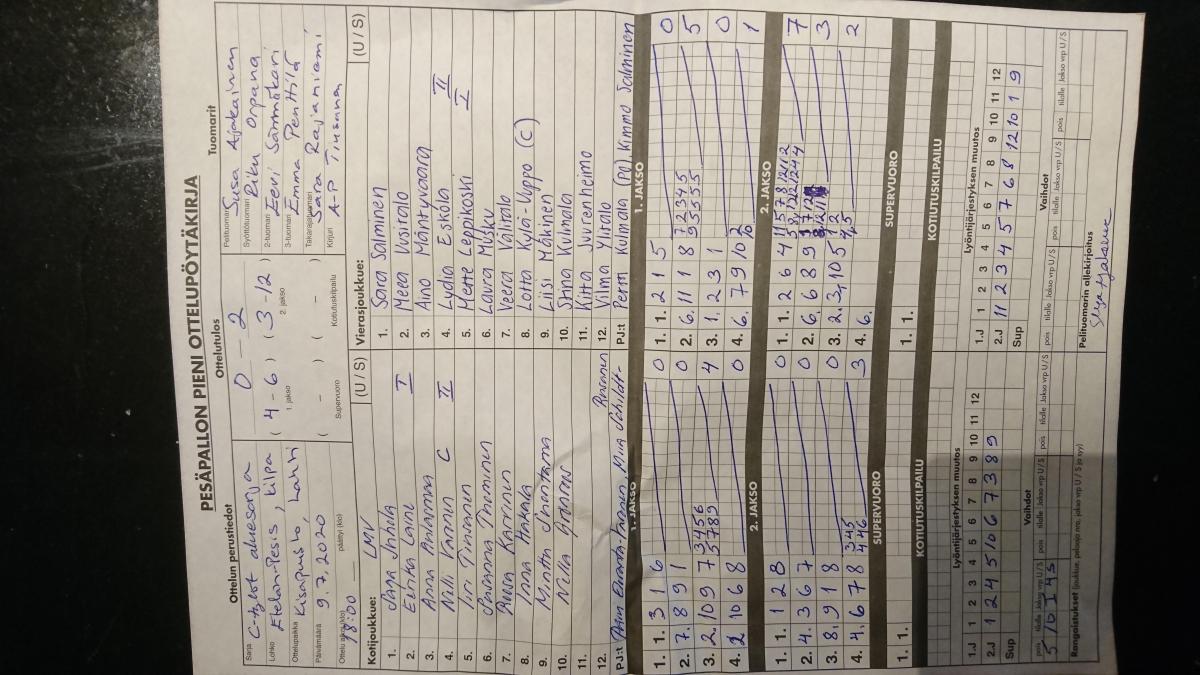 PESÄPALLON PIENI OTTELUPÖYTÄKIRJA
Ottelun perustiedot
Sarja C-tytöt aluesarja
Lohko Etelän-Pesis, kilpa
Ottelupaikka Kisapuisto, Lahti
Päivämäärä 9.7.2020
Ottelu alkoi (klo) 18:00 päättyi (klo)
Ottelutulos
0 – 2
( 4 - 6 ) ( 3 - 12 )
1. jakso 2. jakso
( - ) ( - )
Supervuoro Kotiutuskilpailu
Tuomarit
Pelituomari Susa Ajakainen
Syöttötuomari Riku Orpana
2-tuomari Eevi Särmökari
3-tuomari Emma Penttilä
Takarajatuomari Sara Rajaniemi
Kirjuri A-P Tiusanen
Kotijoukkue: LMV (U / S)
1. Jana
2. Eerika Laine I
3. Anna Anlanma
4. Nilli Vannen C II
5. Tiri Timonen
6. Johanna Thominen
7. Karhinen
8. Iina Hakala
9. Minttu
10. Nella
11.
12.
PJ:t
Vierasjoukkue: (U / S)
1. Sara Salminen
2. Meea Vusitalo
3. Aino Mäntyvaara
4. Lydia Eskola II
5. Mette Leppikoski I
6. Laura Mosku
7. Veera Välitalo
8. Lotta Kylä-Uuppo (C)
9. Liisi Mäkinen
10. Stina Kulmala
11. Kitta Juurenheimo
12. Vilma Ylitalo
PJ:t Pertti Kulmala (PJ) Kimmo Salminen
1. JAKSO
1. 1. 3 1 6 0
2. 7. 8 9 1 0
3. 2. 10 9 7 3 4 5 6 4
5 7 8 9
4. 2 10 6 8 0
2. JAKSO
1. 1. 1 2 8 0
2. 4. 3 6 7 0
3. 8. 9 1 8 0
4. 4. 6 7 8 3 4 5 3
4 4 6
SUPERVUORO
1. 1.
KOTIUTUSKILPAILU
Lyöntijärjestyksen muutos
1.J 1 2 3 4 5 6 7 8 9 10 11 12
2.J 1 2 4 5 10 6 7 3 8 9
Sup
Vaihdot
pois tilalle Jakso vrp U / S pois tilalle Jakso vrp U / S pois tilalle Jakso vrp U / S
5 10 I 4 S
Rangaistukset (joukkue, pelaaja nro, jakso vrp U / S ja syy)
1. JAKSO
1. 1. 2 1 5 0
2. 6. 11 1 8 7 2 3 4 5 5
9 5 5 5 5
3. 1. 2 3 1 0
4. 6. 7 9 10 2 1
10
2. JAKSO
1. 1. 2 6 4 7
2. 6. 6 8 9 3
3. 2. 10 5 2
4. 6.
SUPERVUORO
1. 1.
KOTIUTUSKILPAILU
Lyöntijärjestyksen muutos
1.J 1 2 3 4 5 6 7 8 9 10 11 12
2.J 11 2 3 4 5 7 6 8 12 10 1 9
Sup
Vaihdot
pois tilalle Jakso vrp U / S pois tilalle Jakso vrp U / S pois tilalle Jakso vrp U / S
Pelituomarin allekirjoitus